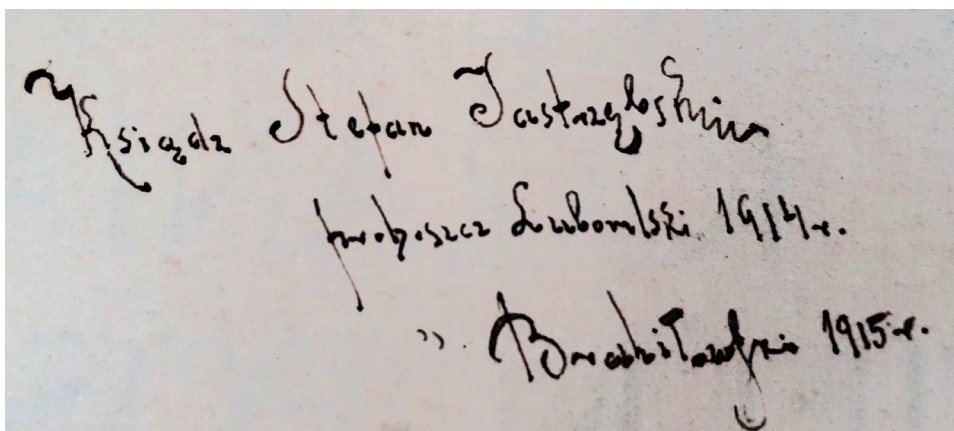 Ksiądz Stefan Jastrzębski
proboszcz Lubomlski 1914 r.
" 1915 r.